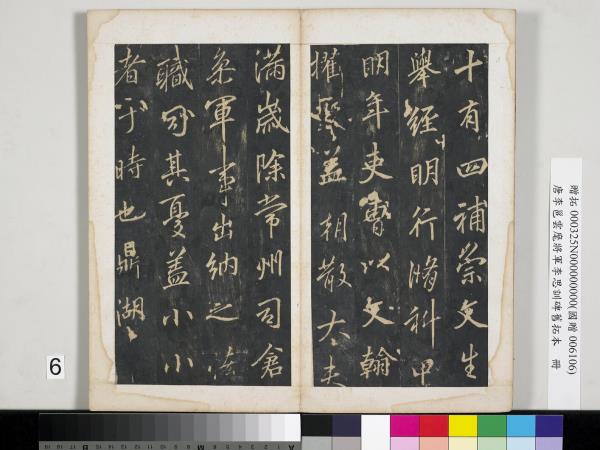 十有四補崇文生
舉經明行脩科甲
明年吏曹以文翰
擢釋盖朝散大夫
滿歲除常州司倉
叅軍事出納之
職司其憂盖小小
者于時也鼎湖
贈拓 000325N000000000(國贈 006106)
唐李邕雲麾將軍李思訓碑舊拓本 冊
6